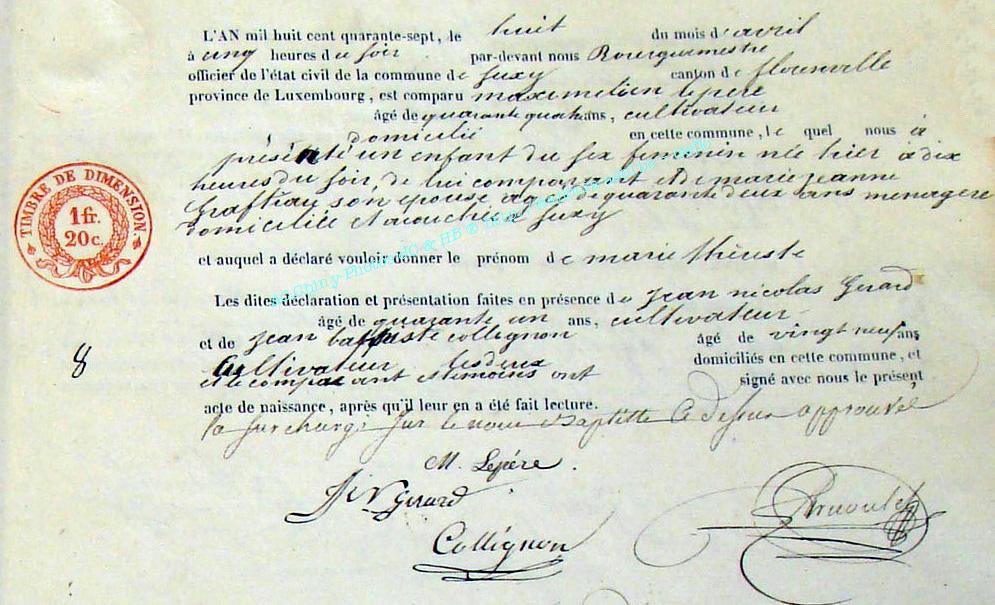 L'AN mil huit cent quarante-sept, le huit du mois d'avril
à cinq heures du soir par-devant nous Bourguemestre
officier de l'état civil de la commune de Suxy canton de florenville
province de Luxembourg, est comparu maximelien Lepere
âgé de quarante quatre ans, cultivateur
domicilié en cette commune, le quel nous à
présenté un enfant du sex feminin née hier à dix
heures du soir, de lui comparant et de marie jeanne
son épouse agée de quarante deux ans menagere
domiciliée et acouchée à Suxy
et auquel a déclaré vouloir donner le prénom de marie
Les dites déclaration et présentation faites en présence de Jean nicolas Gerard
âgé de quarante un ans, cultivateur
et de jean baptiste collignon âgé de vingt neuf ans
Cultivateur les deux domiciliés en cette commune, et
et le comparant et temoins ont signé avec nous le présent
acte de naissance, après qu'il leur en a été fait lecture.
la surcharge sur le nom Baptiste Ci dessus approuvée
M. Lepére.
J N Gerard
Collignon
TIMBRE DE DIMENSION.
1 fr.
20 c.
8